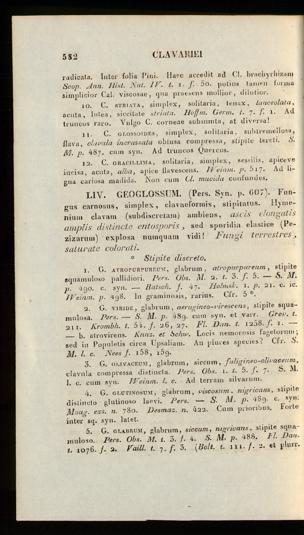 582 CLAVARIEI
radicata. Inter folia Pini. Haec accedit ad Cl. brachyrhizam
Scop. Ann. Hist. Nat. IV. t. 1. f. 50. potius tamen forma
simplicior Cal. viscosae, qua praesens mollior, dilutior.
10. C. STRIATA, simplex, solitaria, tenax, lanceolata,
acuta, lutea, siccitate striata. Hoffm. Germ. t. 7. f. 1. Ad
truncos raro. Vulgo C. corneae subiuncta, at diversa!
11. C. GLOSSOIDES, simplex, solitaria, subtremellosa,
flava, clavula incrassata obtusa compressa, stipite tereti. S.
M. p. 487. cum syn. Ad truncos Quercus.
12. C. GRACILLIMA, solitaria, simplex, sessilis, apiceve
incisa, acuta, alba, apice flavescens. Weinm. p. 517. Ad li-
gna cariosa madida. Non cum Cl. mucida confundes.
LIV. GEOGLOSSUM. (Pers. Syn. p. 607). Fun-
gus carnosus, simplex, clavaeformis, stipitatus. Hyme-
nium clavam (subdiscretam) ambiens, ascis elongatis
amplis distincte entosporis, sed sporidia elastice (Pe-
zizarum) explosa nunquam vidi! Fungi terrestres,
saturate colorati.
* Stipite discreto.
1. G. ATROPURPUREUM, glabrum, atropurpureum, stipite
squamuloso pallidiori. Pers. Obs. M. 2. t. 3. f. 5. — S. M.
p. 490. c. syn. — Batsch. f. 47. Holmsk. 1. p. 21. c. ic.
Weinm. p. 498. In graminosis, rarius. Cfr. 5*.
2. G. VIRIDE, glabrum, aerugineo-viresc­ens, stipite squa-
mulosa. Pers. — S. M. p. 489. cum syn. et varr. Grev. t.
211. Krombh. t. 5. f. 26, 27. Fl. Dan. t. 1258. f. 1. —
— b. atrovirens. Kunz. et Schm. Locis nemorosis fagetorum;
sed in Populetis circa Upsaliam. An pluces species? Cfr. S.
M. l. c. Nees f. 158, 159.
3. G. OLIVACEUM, glabrum, siccum, fuligineo-olivaceum,
clavula compressa distincta. Pers. Obs. 1. t. 5. f. 7. S. M.
l. c. cum syn. Weinm. l. c. Ad terram silvarum.
4. G. GLUTINOSUM, glabrum, viscosum, nigricans, stipite
distincto glutinoso laevi. Pers. — S. M. p. 489. c. syn.
Moug. exs. n. 780. Desmaz. n. 422. Cum prioribus. Forte
inter sq. syn. latet.
5. G. GLABRUM, glabrum, siccum, nigricans, stipite squa-
muloso. Pers. Obs. M. t. 3. f. 4. S. M. p. 488. Fl. Dan.
t. 1076. f. 2. Vaill. t. 7. f. 3. (Bolt. t. 111. f. 2. et plurr.